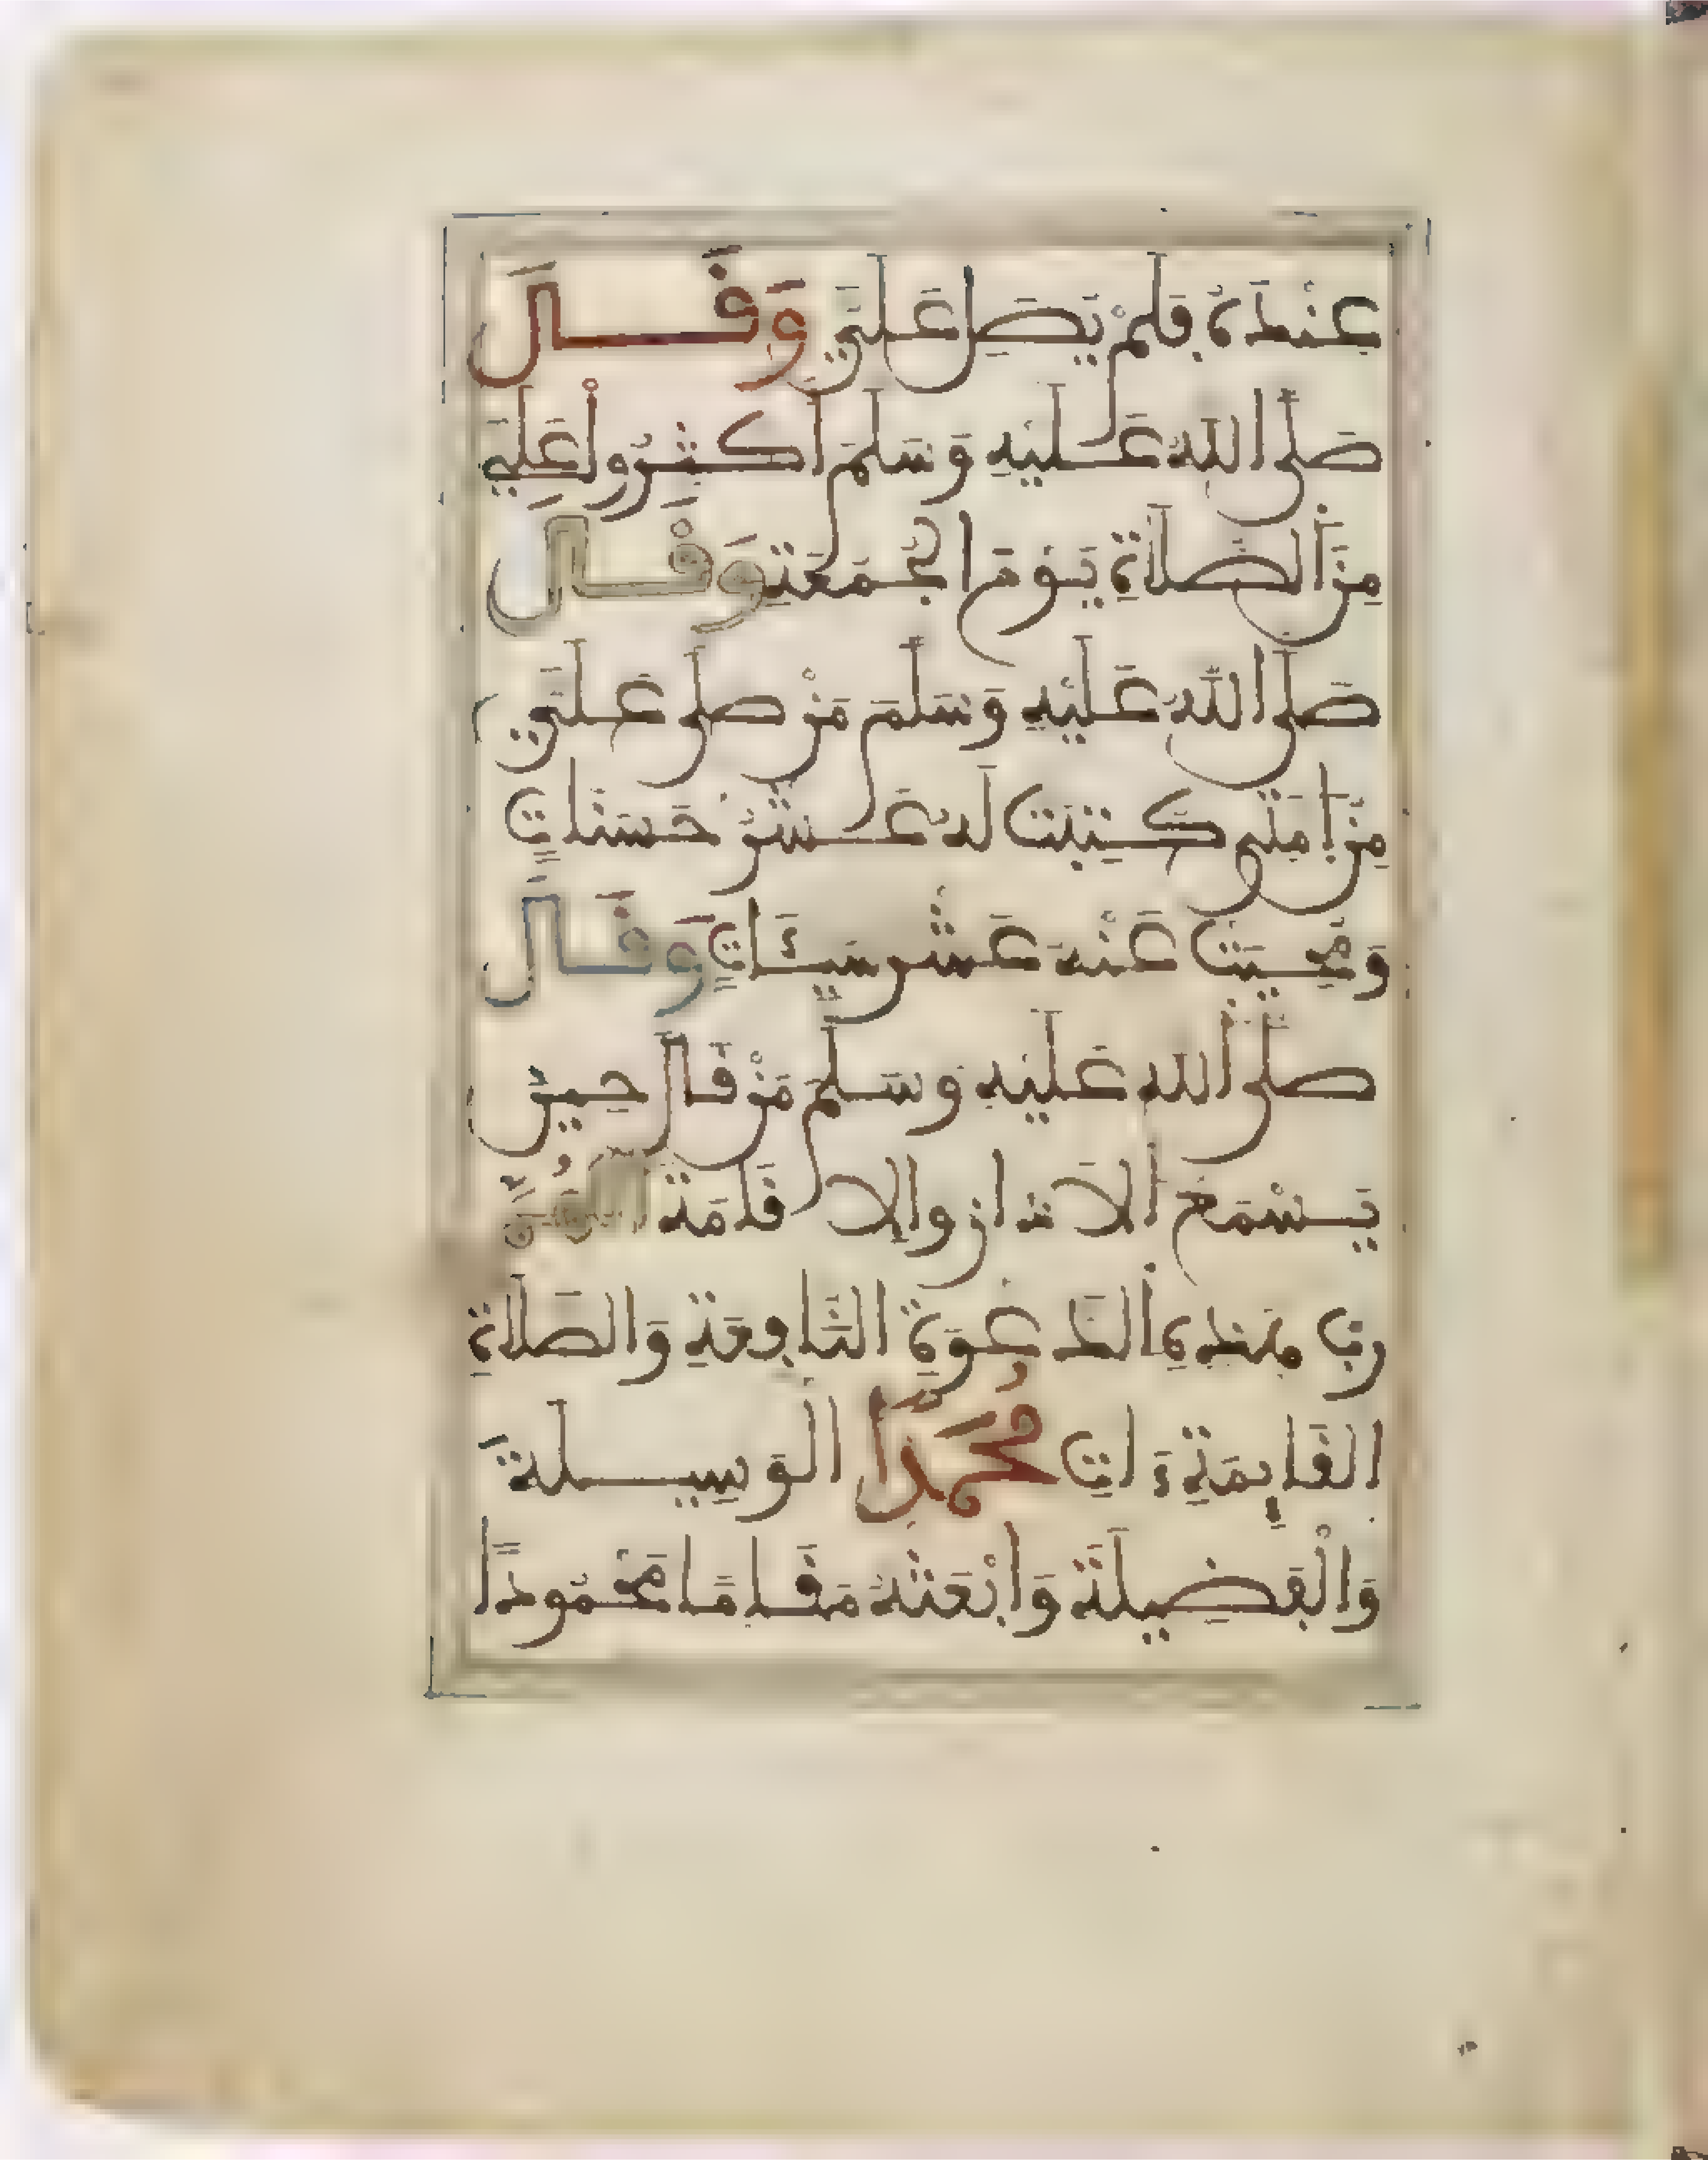 عِنْدَهُ فَلَمْ يُصَلِّ عَلَيَّ وَقَالَ
صَلَّى اللهُ عَلَيْهِ وَسَلَّمَ أَكْثِرُوا عَلَيَّ
مِنَ الصَّلَاةِ يَوْمَ الْجُمُعَةِ وَقَالَ
صَلَّى اللهُ عَلَيْهِ وَسَلَّمَ مَنْ صَلَّى عَلَيَّ
مِنْ أُمَّتِي كُتِبَتْ لَهُ عَشْرُ حَسَنَاتٍ
وَمُحِيَتْ عَنْهُ عَشْرُ سَيِّئَاتٍ وَقَالَ
صَلَّى اللهُ عَلَيْهِ وَسَلَّمَ مَنْ قَالَ حِينَ
يَسْمَعُ الْأَذَانَ وَالْإِقَامَةَ اللَّهُمَّ
رَبَّ هَذِهِ الدَّعْوَةِ النَّافِعَةِ وَالصَّلَاةِ
الْقَايِمَةِ ءَاتِ مُحَمَّدًا الْوَسِيلَةَ
وَالْفَضِيلَةَ وَابْعَثْهُ مَقَامًا مَحْمُودًا